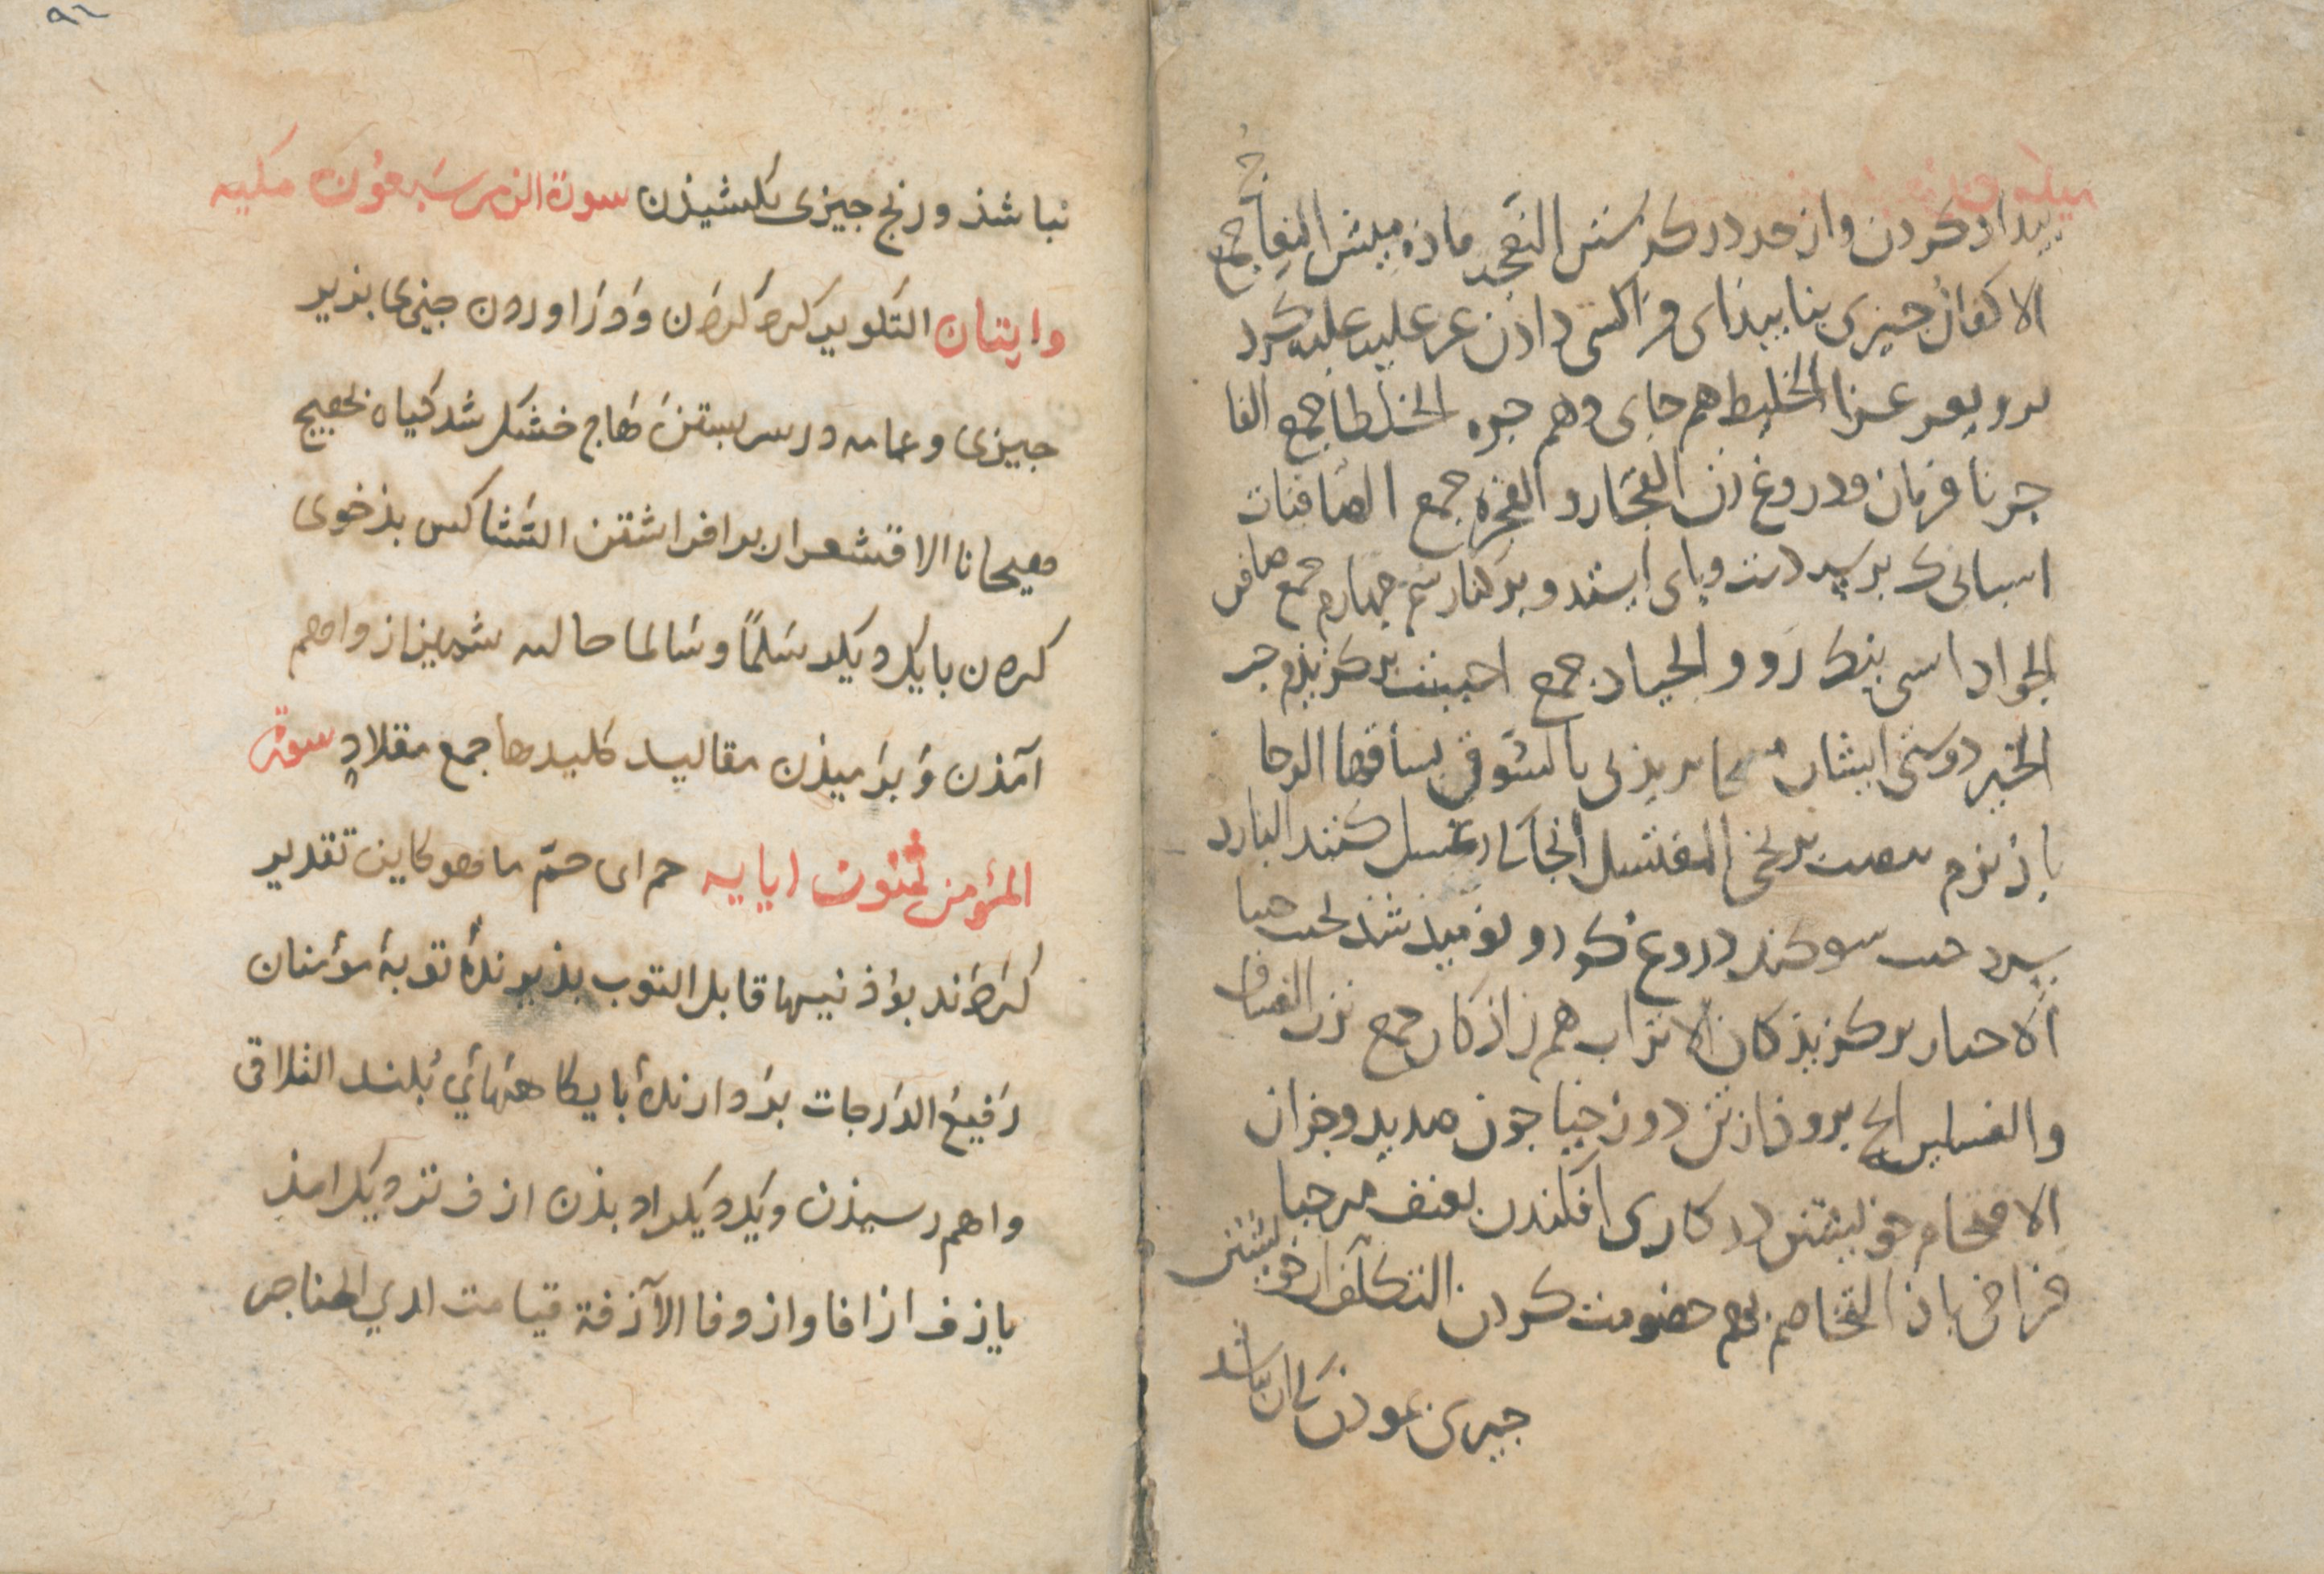 بیداد کردن و از حد در کذشتن النعجه ماده میش النعاج جمع
الاکفال چیزی بنا بیندای فراکسی دادن عز علیه غلبه کرد
برو یعز عزا الخلیط هم جای و هم جره الخلطا جمع الفا
جر نا فرمان و دروغ زن الفجار و الفجره جمع الصافنات
اسبانی ک بر سه دست و پای ایستد و بر کنار سم چهارم جمع صافن
الجواد اسپی نیک رو و الجیاد جمع احببت برکزیدم حب
الخیر دوستی ایشان مسحا بریدنی بالسوق بساقها الرخا
باذ نرم بنصب برنجی المغتسل انجا ک ازو غسل کنند البارد
سرد حنث سوکند دروغ کرد و نومید شد یحنث حنثا
الاخیار برکزیدکان الاتراب هم زاذکان جمع ترب الغساق
والغسلین انج برود از تن دوزخیان چون صدید و جز ان
الاقتحام خویشتن در کاری افکندن بعنف مرحبا
فراخی باذ التخاصم بهم خصومت کردن التکلف از خویشتن
چیزی نمودن ک ان نباشد
۹۲
نباشذ و رنج جیزی بکشیذن سورة الزمر سبعون مکیه
وایتان التکویر کرد کردن و دراوردن جیزی بذیر
جیزی و عمامه در سر بستن هاج خشک شد کیاه یهیج
هیجانا الاقشعرار برافراشتن التشاکس بذخوی
کردن با یکدیکر سلما و سالما خالص شمیز از واهم
آمذن و برمیذن مقالید کلیدها جمع مقلاد سورة
المؤمن ثمنون ایایه حم ای حم ما هو کاین تقدیر
کردند بوذنیها قابل التوب بذیرندۀ توبۀ مؤمنان
رفیع الدرجات بردارندۀ بایکاههائی بلند التلاق
واهم رسیذن ویکدیکر ادیذن ازف نزدیک امذ
یازف ازافا وازوفا الآزفة قیامت لدی الحناجر